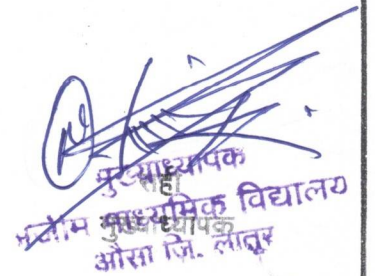 मुख्याध्यापक
सही
माध्यमिक विद्यालय
मुख्याध्यापक
औसा जि. लातूर